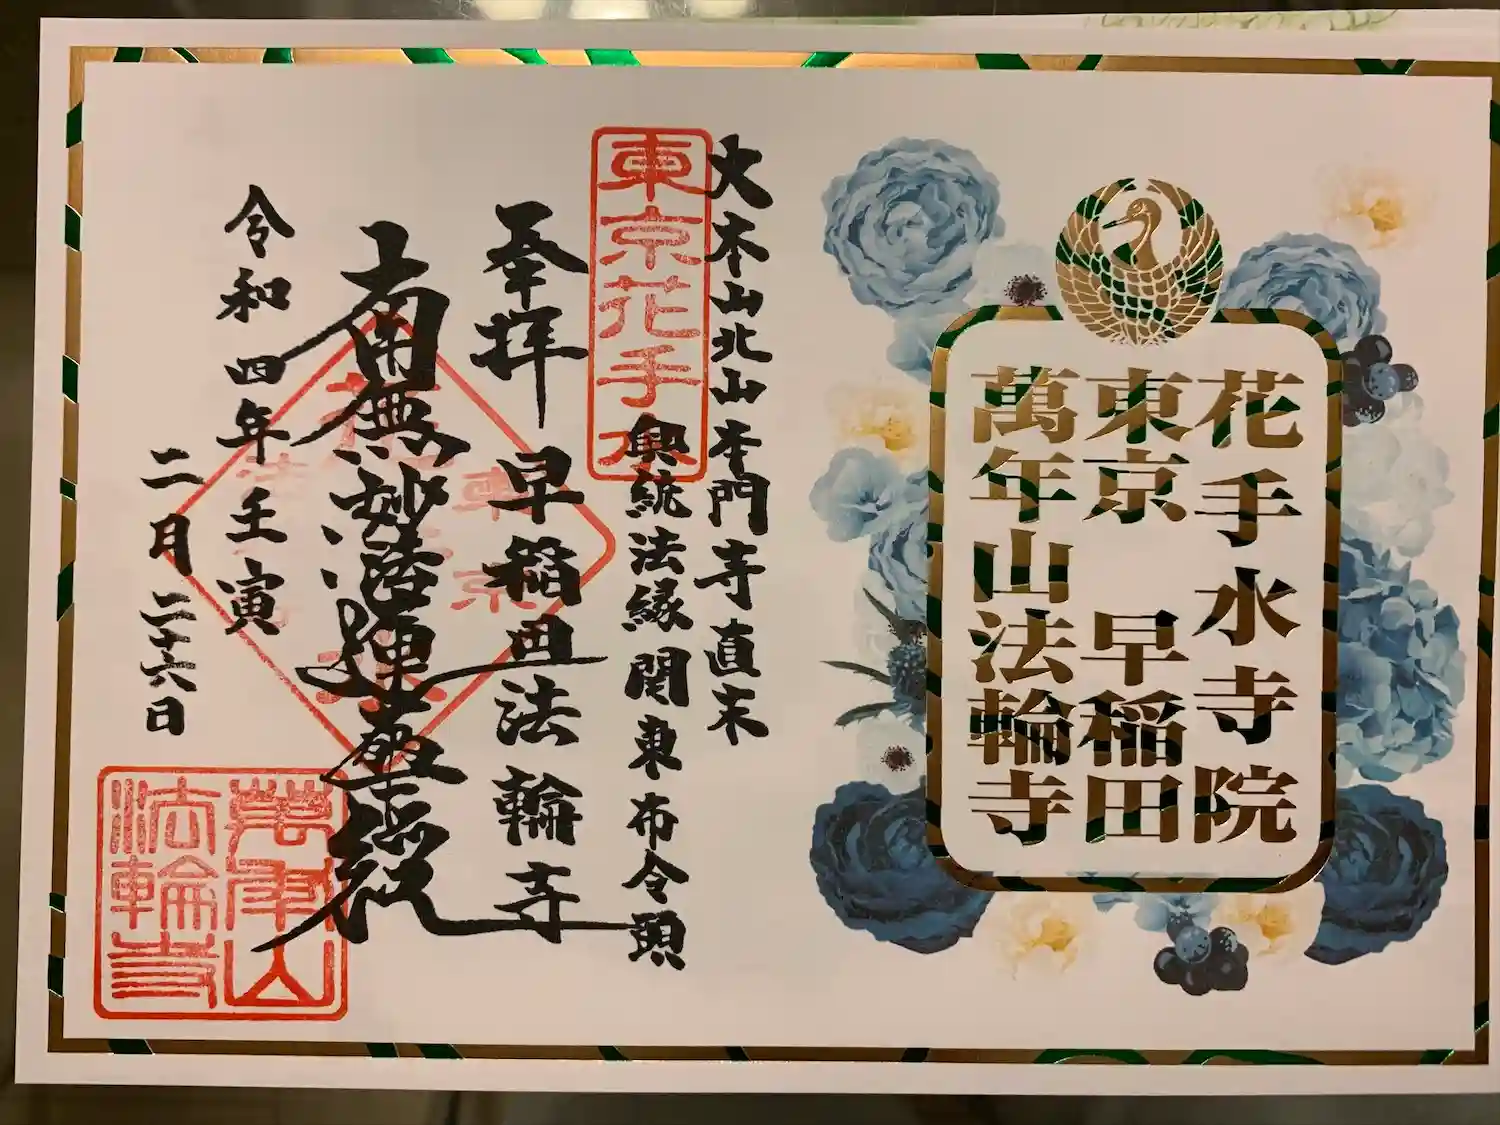 花手水寺院
東京 早稲田
萬年山法輪寺
大本山北山本門寺直末
興統法縁関東布令頭
東京花手水
奉拝 早稲田法輪寺
南無妙法蓮華経
令和四年壬寅
二月二十六日
萬年山
法輪寺